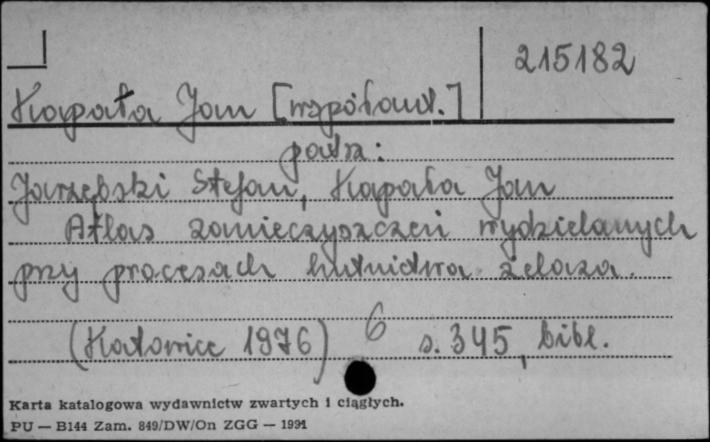 215182
Kapała Jan [współaut.]
patrz:
Jarzębski Stefan, Kapała Jan
Atlas zanieczyszczeń wydzielanych
przy procesach hutnictwa żelaza.
(Katowice 1976) 6 s. 345, bibl.
Karta katalogowa wydawnictw zwartych i ciągłych.
PU — B144 Zam. 849/DW/On ZGG — 1991